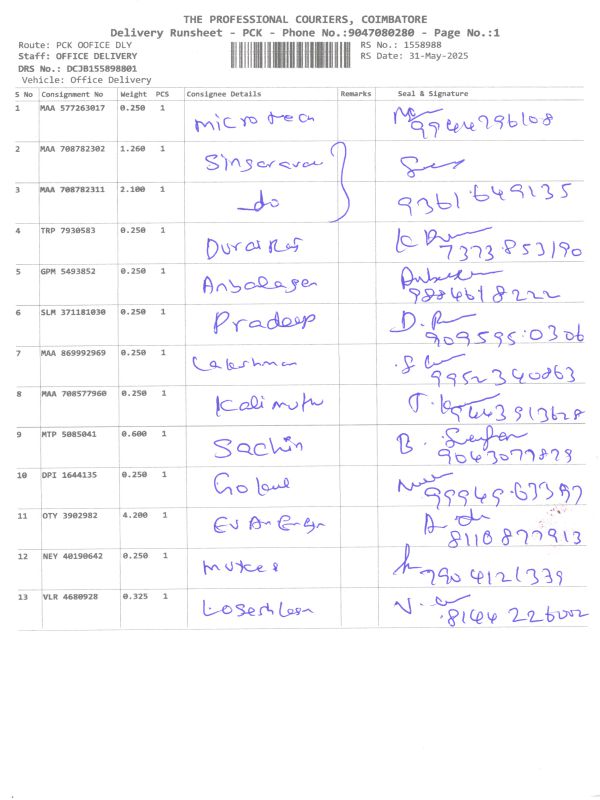 THE PROFESSIONAL COURIERS, COIMBATORE
Delivery Runsheet - PCK - Phone No.:9047080280 - Page No.:1
Route: PCK OOFICE DLY RS No.: 1558988
Staff: OFFICE DELIVERY RS Date: 31-May-2025
DRS No.: DCJB155898801
Vehicle: Office Delivery
S No Consignment No Weight PCS Consignee Details Remarks Seal & Signature
1 MAA 577263017 0.250 1 microtech
9944296108
2 MAA 708782302 1.260 1 Singaravav
3 MAA 708782311 2.100 1 do 9361649135
4 TRP 7930583 0.250 1 Durai Raj
7373853190
5 GPM 5493852 0.250 1 Anbalagan
9884618222
6 SLM 371181030 0.250 1 Pradeep
9095950306
7 MAA 869992969 0.250 1 Lakshman
9952340863
8 MAA 708577960 0.250 1 Kalimuthu
9443913628
9 MTP 5085041 0.600 1 Sachin B.
9043077879
10 DPI 1644135 0.250 1 Gokul
11 OTY 3902982 4.200 1
8110877913
12 NEY 40190642 0.250 1
7904121339
13 VLR 4680928 0.325 1
8144226002